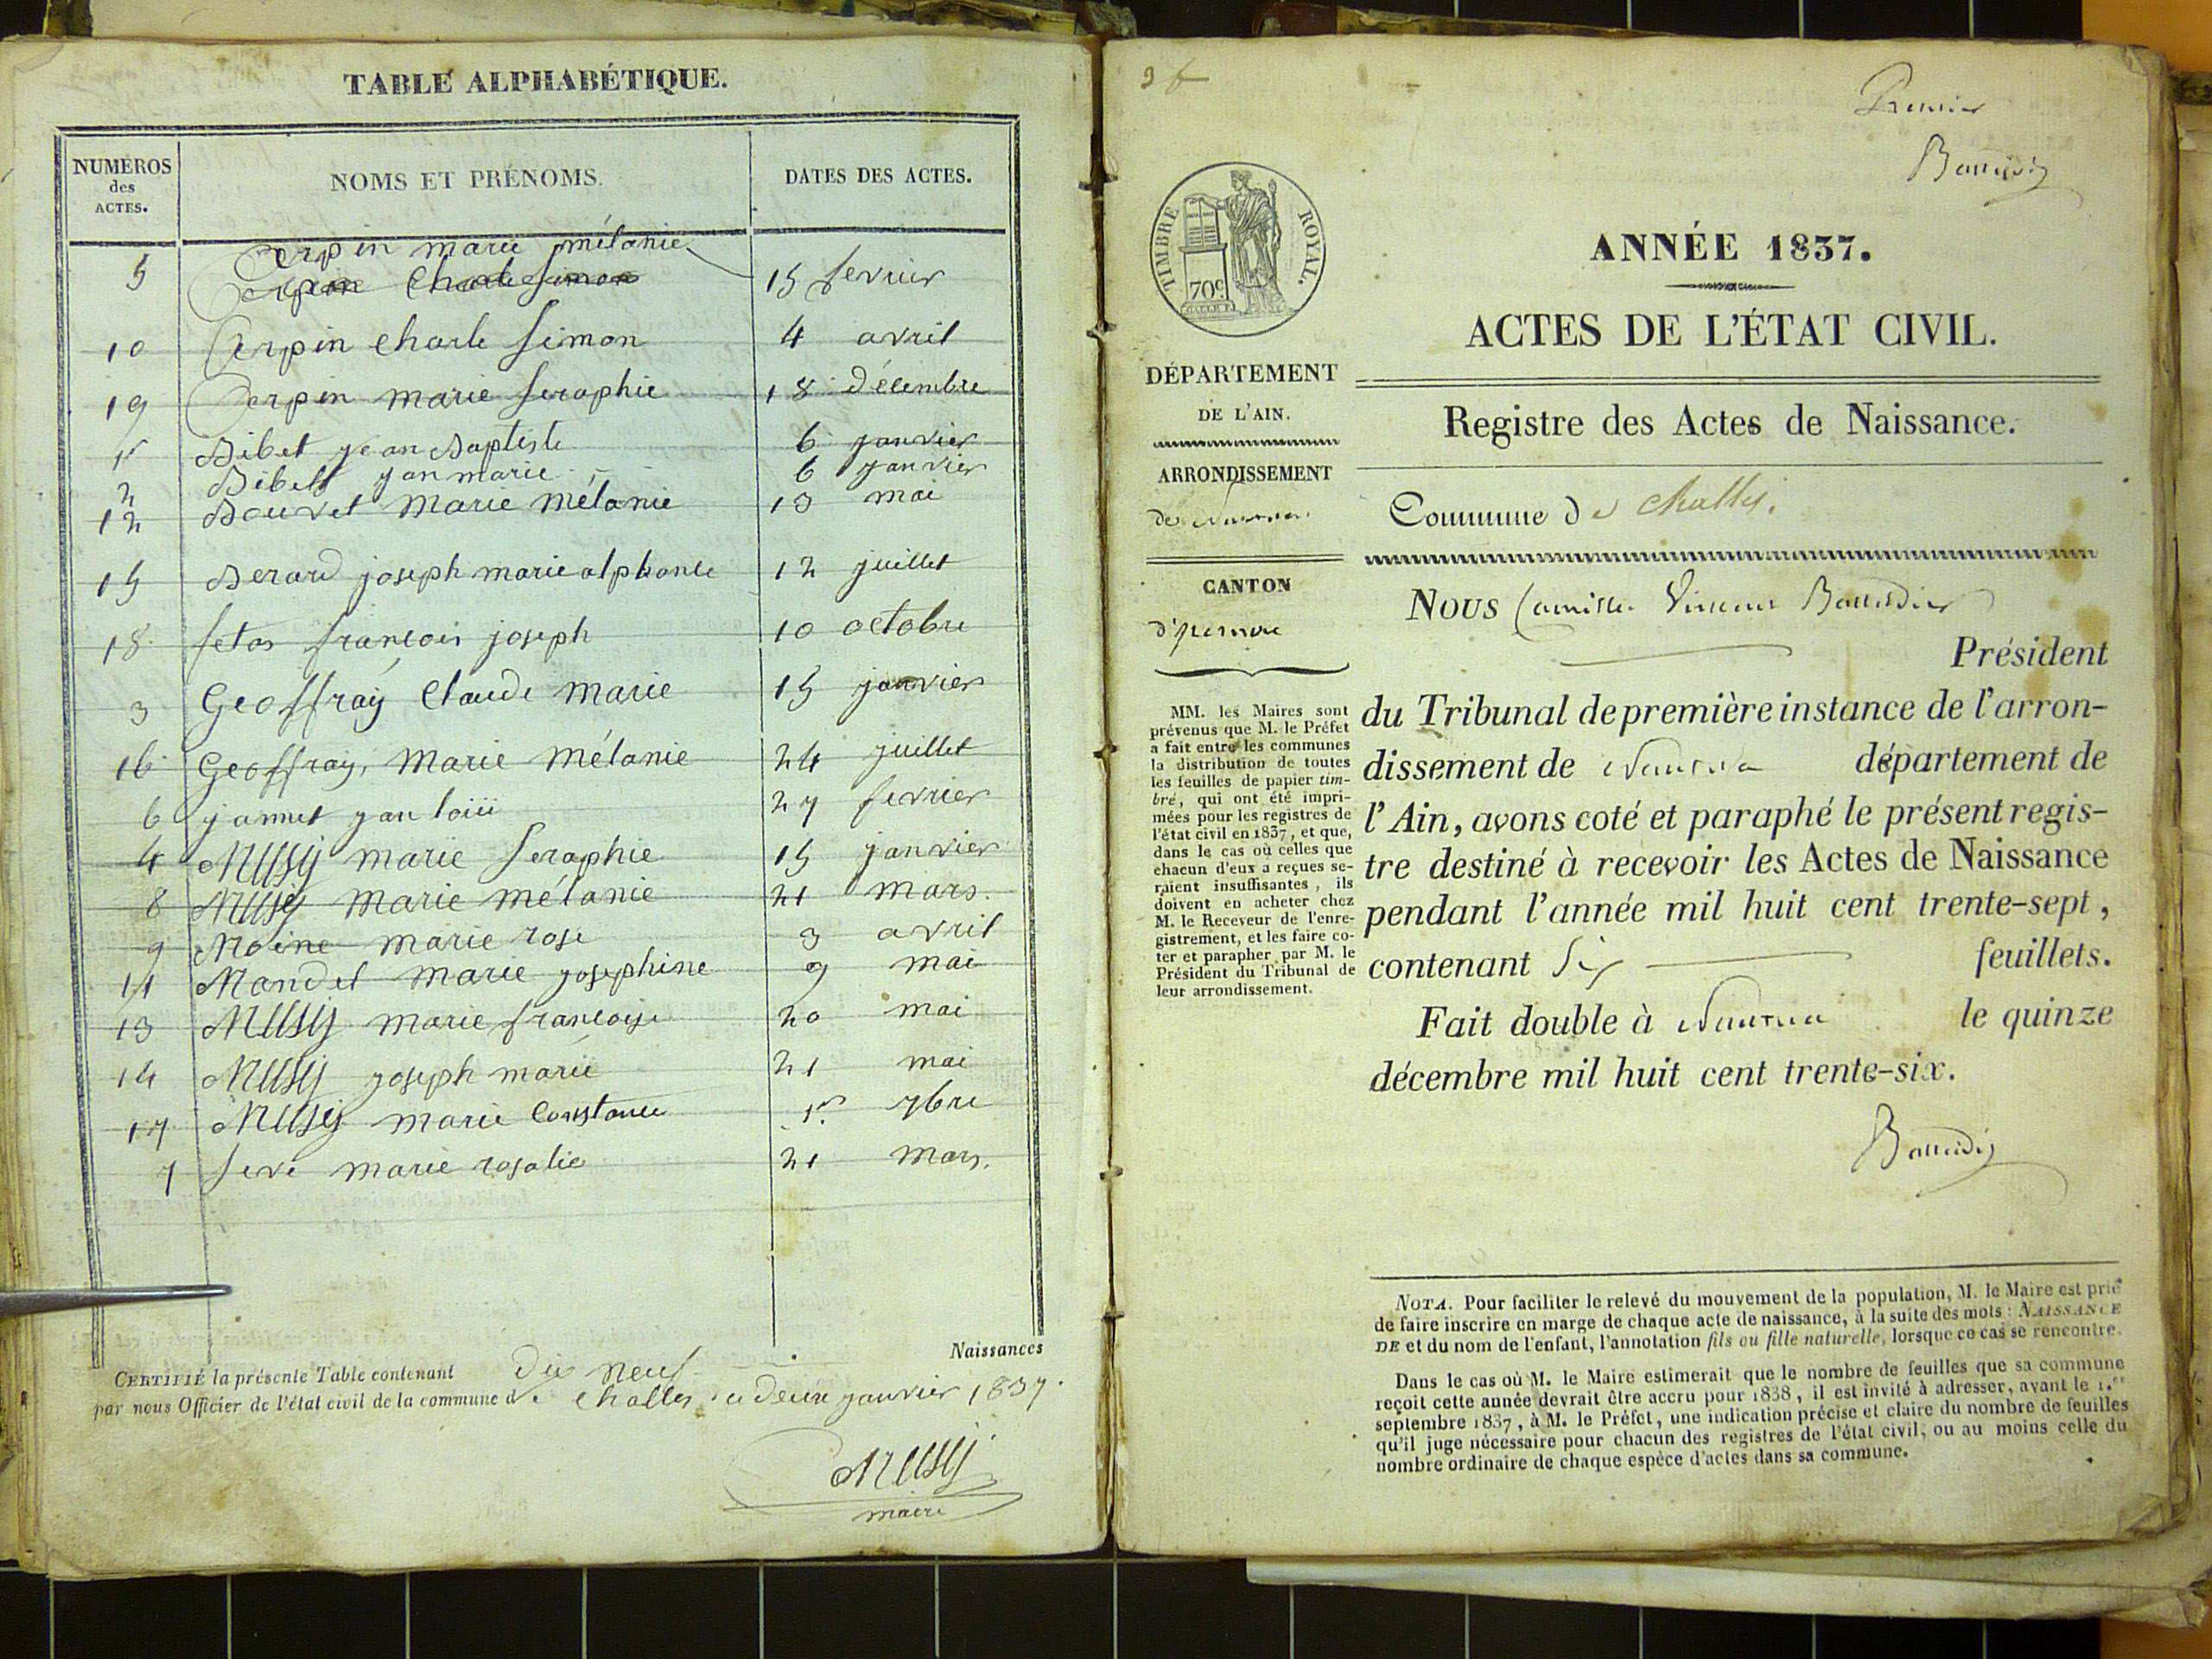 TABLE ALPHABÉTIQUE.
NUMÉROS des ACTES. NOMS ET PRÉNOMS. DATES DES ACTES.
Cerpin marie mélanie
5 Cerpin Charle Simon 15 fevrier
10 Cerpin charle Simon 4 avril
19 Cerpin marie Seraphie 18 décembre
1r Bibet jean Baptiste 6 janvier
2 Bibet jan marie 6 janvier
12 Bouvet Marie Mélanie 13 mai
15 Berard joseph marie alphonse 12 juillet
18 fetas françois joseph 10 octobre
3 Geoffray Claude Marie 15 janvier
16 Geoffray, Marie Mélanie 24 juillet
6 jannet jan loiü 27 fevrier
4 Mussy marie Seraphie 15 janvier
8 Mussy Marie mélanie 21 mars.
9 Moine marie rose 3 avril
11 Mandet marie josephine 9 mai
13 Mussy marie françoise 20 mai
14 Mussy joseph marie 21 mai
17 Mussy marie Constance 1er 7bre
7 Seve marie rosalie 21 mars.
Naissances
CERTIFIÉ la présente Table contenant dix neuf
par nous Officier de l'état civil de la commune de challes ce deux janvier 1837.
Mussy
maire
Premier
ANNÉE 1837.
TIMBRE ROYAL.
70c
ACTES DE L'ÉTAT CIVIL.
DÉPARTEMENT
DE L'AIN.
Registre des Actes de Naissance.
ARRONDISSEMENT
de Nantua
Commune de challes.
CANTON
d'izernore
Nous Camille Vincent
Président
du Tribunal de première instance de l'arron-
dissement de Nantua département de
l'Ain, avons coté et paraphé le présent regis-
tre destiné à recevoir les Actes de Naissance
pendant l'année mil huit cent trente-sept,
contenant Six feuillets.
Fait double à Nantua le quinze
décembre mil huit cent trente-six.
MM. les Maires sont
prévenus que M. le Préfet
a fait entre les communes
la distribution de toutes
les feuilles de papier tim-
bré, qui ont été impri-
mées pour les registres de
l'état civil en 1837, et que,
dans le cas où celles que
chacun d'eux a reçues se-
raient insuffisantes, ils
doivent en acheter chez
M. le Receveur de l'enre-
gistrement, et les faire co-
ter et parapher par M. le
Président du Tribunal de
leur arrondissement.
NOTA. Pour faciliter le relevé du mouvement de la population, M. le Maire est prié
de faire inscrire en marge de chaque acte de naissance, à la suite des mots : NAISSANCE
DE et du nom de l'enfant, l'annotation fils ou fille naturelle, lorsque ce cas se rencontre.
Dans le cas où M. le Maire estimerait que le nombre de feuilles que sa commune
reçoit cette année devrait être accru pour 1838, il est invité à adresser, avant le 1.er
septembre 1837, à M. le Préfet, une indication précise et claire du nombre de feuilles
qu'il juge nécessaire pour chacun des registres de l'état civil, ou au moins celle du
nombre ordinaire de chaque espèce d'actes dans sa commune.